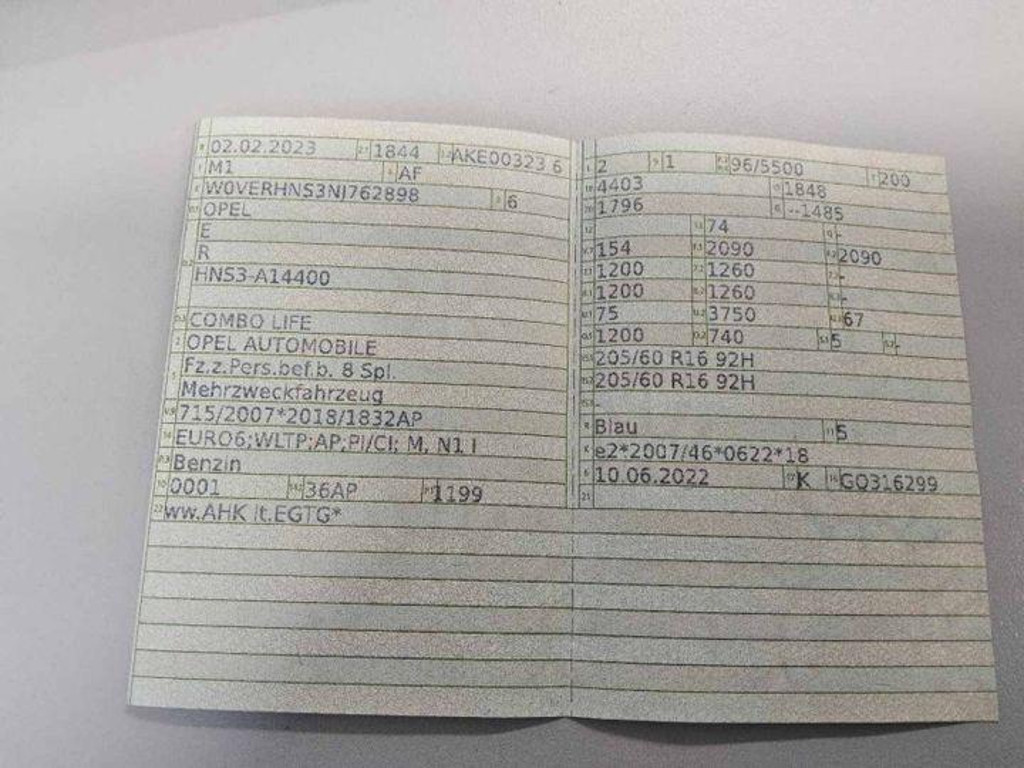 02.02.2023 1844 AKE00323 6
M1 AF
W0VERHNS3NJ762898 6
OPEL
E
R
HNS3-A14400
COMBO LIFE
OPEL AUTOMOBILE
Fz.z.Pers.bef.b. 8 Spl.
Mehrzweckfahrzeug
715/2007*2018/1832AP
EURO6;WLTP;AP;PI/CI; M, N1 I
Benzin
0001 36AP 1199
22 ww.AHK lt.EGTG*
2 1 96/5500 200
4403 1848
1796 --1485
74 -
154 2090 2090
1200 1260 -
1200 1260 -
75 3750 67
1200 740 5 -
205/60 R16 92H
205/60 R16 92H
-
Blau 5
e2*2007/46*0622*18
10.06.2022 K GQ316299
21